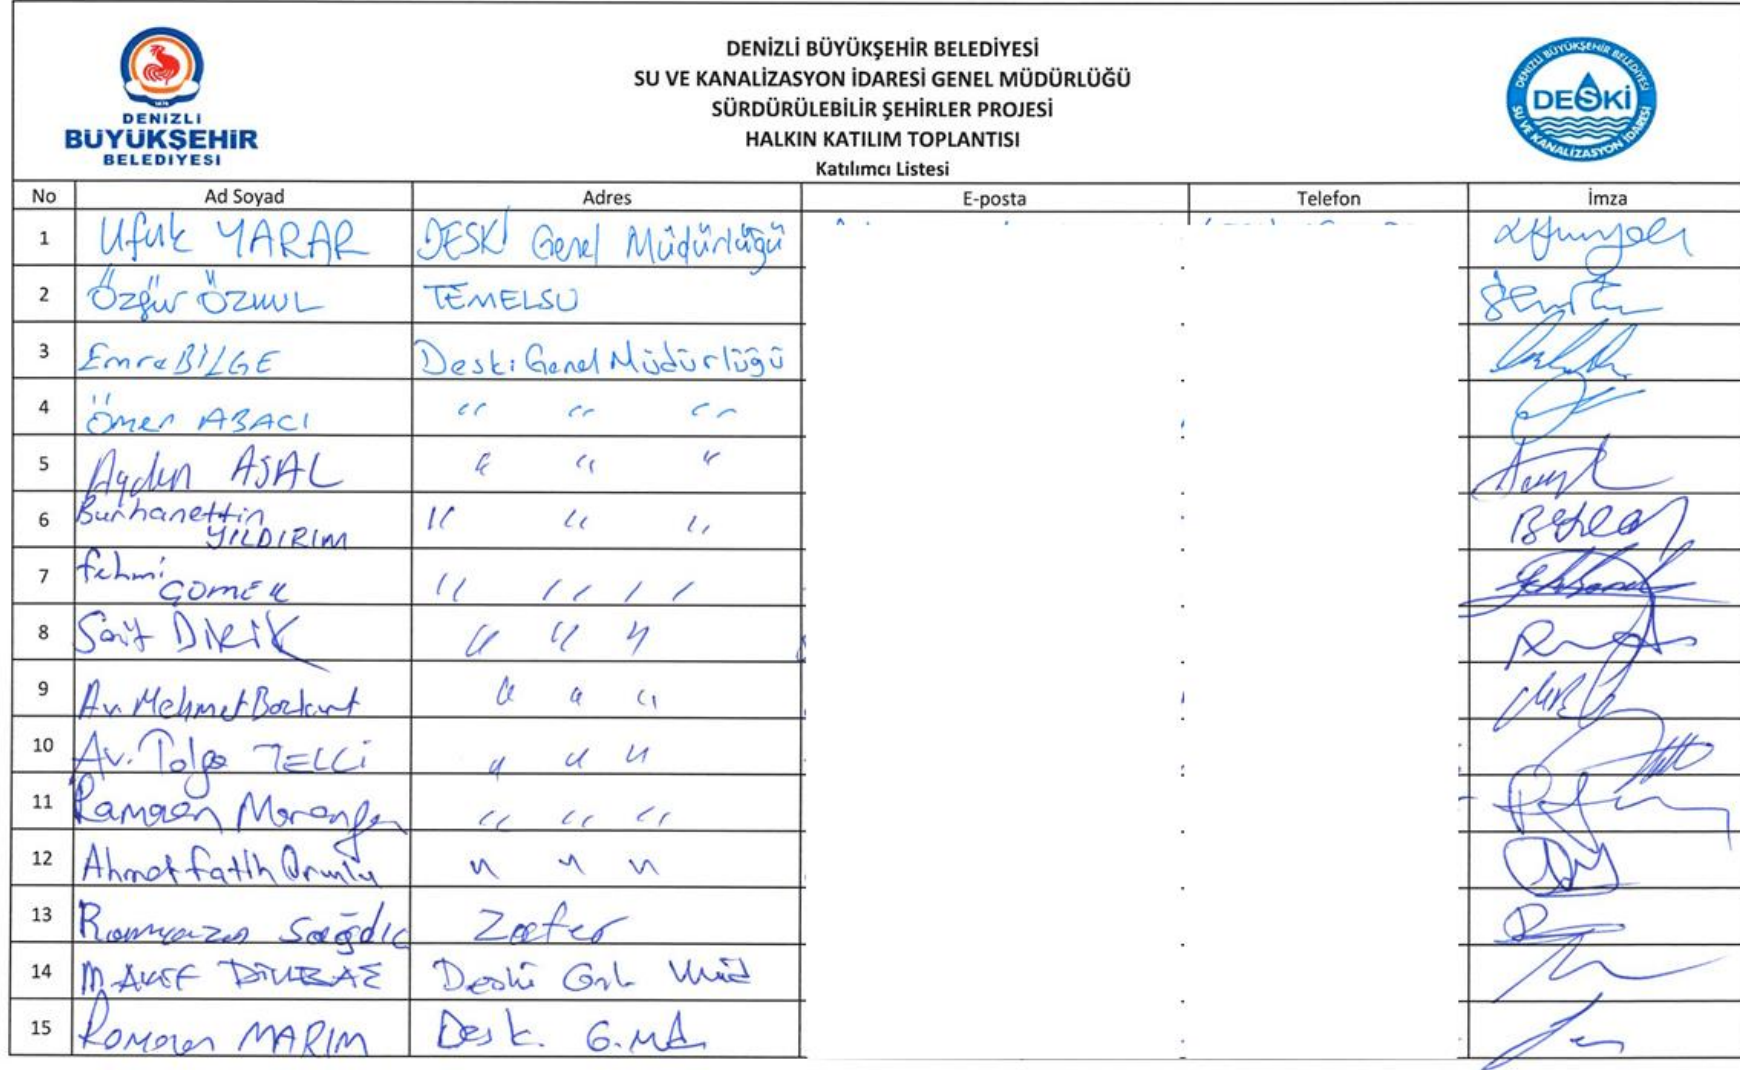 DENİZLİ
BÜYÜKŞEHİR
BELEDİYESİ
DENİZLİ BÜYÜKŞEHİR BELEDİYESİ
SU VE KANALİZASYON İDARESİ GENEL MÜDÜRLÜĞÜ
SÜRDÜRÜLEBİLİR ŞEHİRLER PROJESİ
HALKIN KATILIM TOPLANTISI
Katılımcı Listesi
DENİZLİ BÜYÜKŞEHİR BELEDİYESİ
DESKİ
SU VE KANALİZASYON İDARESİ
No Ad Soyad Adres E-posta Telefon İmza
1 Ufuk YARAR DESKİ Genel Müdürlüğü
2 Özgür TEMELSU
3 Emre BİLGE Deski Genel Müdürlüğü
4 Ömer ABACI " " "
5 Aydın " " "
6 Burhanettin " " "
YILDIRIM
7 Fehmi " " " "
8 Sait DİRİK " " "
9 Av. Mehmet Bozkurt " " "
10 Av. Tolga TELCİ " " "
11 Ramazan " " "
12 Ahmet Fatih " " "
13 Ramazan Sağdıç Zafer
14 M. AKİF Deski Gnl Müd
15 Ramazan MARIM Desk. G.Md.